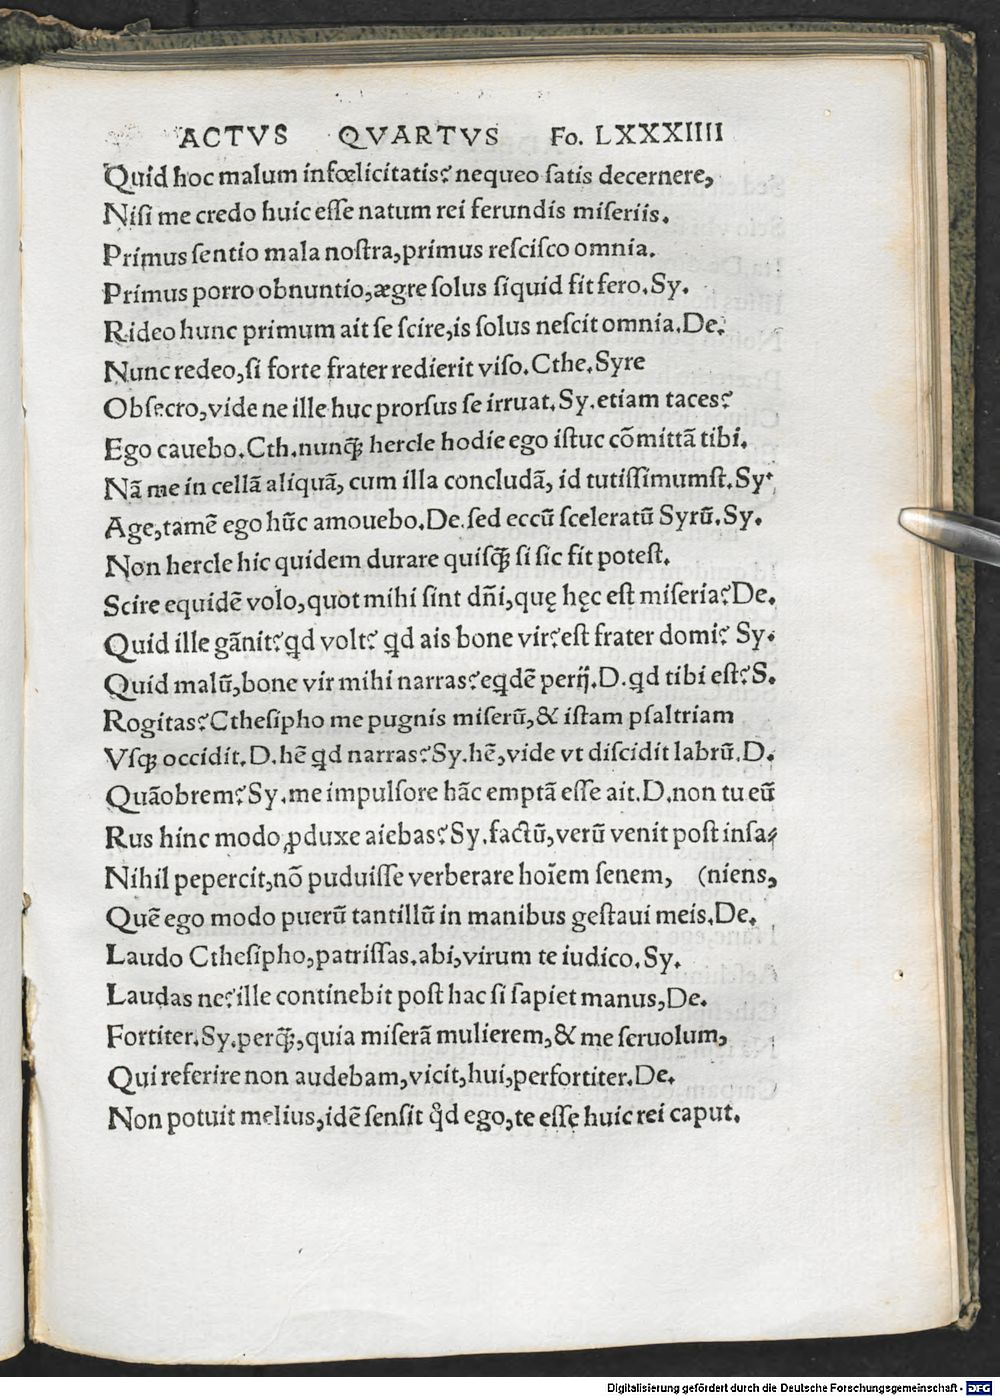 ACTVS QVARTVS Fo. LXXXIIII
Quid hoc malum infœlicitatis? nequeo ſatis decernere,
Niſi me credo huic eſſe natum rei ferundis miſeriis.
Primus ſentio mala noſtra,primus reſciſco omnia.
Primus porro obnuntio,ægre ſolus ſiquid fit fero.Sy.
Rideo hunc primum ait ſe ſcire,is ſolus neſcit omnia.De.
Nunc redeo,ſi forte frater redierit viſo.Cthe.Syre
Obſecro,vide ne ille huc prorſus ſe irruat.Sy.etiam taces?
Ego cauebo.Cth.nunꝙ̃ hercle hodie ego iſtuc cōmittā tibi.
Nā me in cellā aliquā, cum illa concludā, id tutiſſimumſt.Sy.
Age,tamē ego hūc amouebo.De.ſed eccū ſceleratū Syrū.Sy.
Non hercle hic quidem durare quiſꝙ̃ ſi ſic fit poteſt.
Scire equidē volo,quot mihi ſint dñi,quę hęc eſt miſeria?De.
Quid ille gānit?qd volt? qd ais bone vir?eſt frater domi? Sy.
Quid malū,bone vir mihi narras?eqdē perij.D.qd tibi eſt?S.
Rogitas?Ctheſipho me pugnis miſerū,& iſtam pſaltriam
Vſqꝫ occidit.D.hē qd narras?Sy.hē,vide vt diſcidit labrū.D.
Quāobrem?Sy.me impulſore hāc emptā eſſe ait.D.non tu eū
Rus hinc modo ꝓduxe aiebas?Sy.factū,verū venit poſt inſa⸗
Nihil pepercit,nō puduiſſe verberare hoīem ſenem, (niens,
Quē ego modo puerū tantillū in manibus geſtaui meis.De.
Laudo Ctheſipho,patriſſas.abi,virum te iudico.Sy.
Laudas ne?ille continebit poſt hac ſi ſapiet manus,De.
Fortiter.Sy.perꝙ̃,quia miſerā mulierem,& me ſeruolum,
Qui referire non audebam,vicit,hui,perfortiter.De.
Non potuit melius,idē ſenſit qd ego,te eſſe huic rei caput.
Digitalisierung gefördert durch die Deutsche Forschungsgemeinschaft - DFG